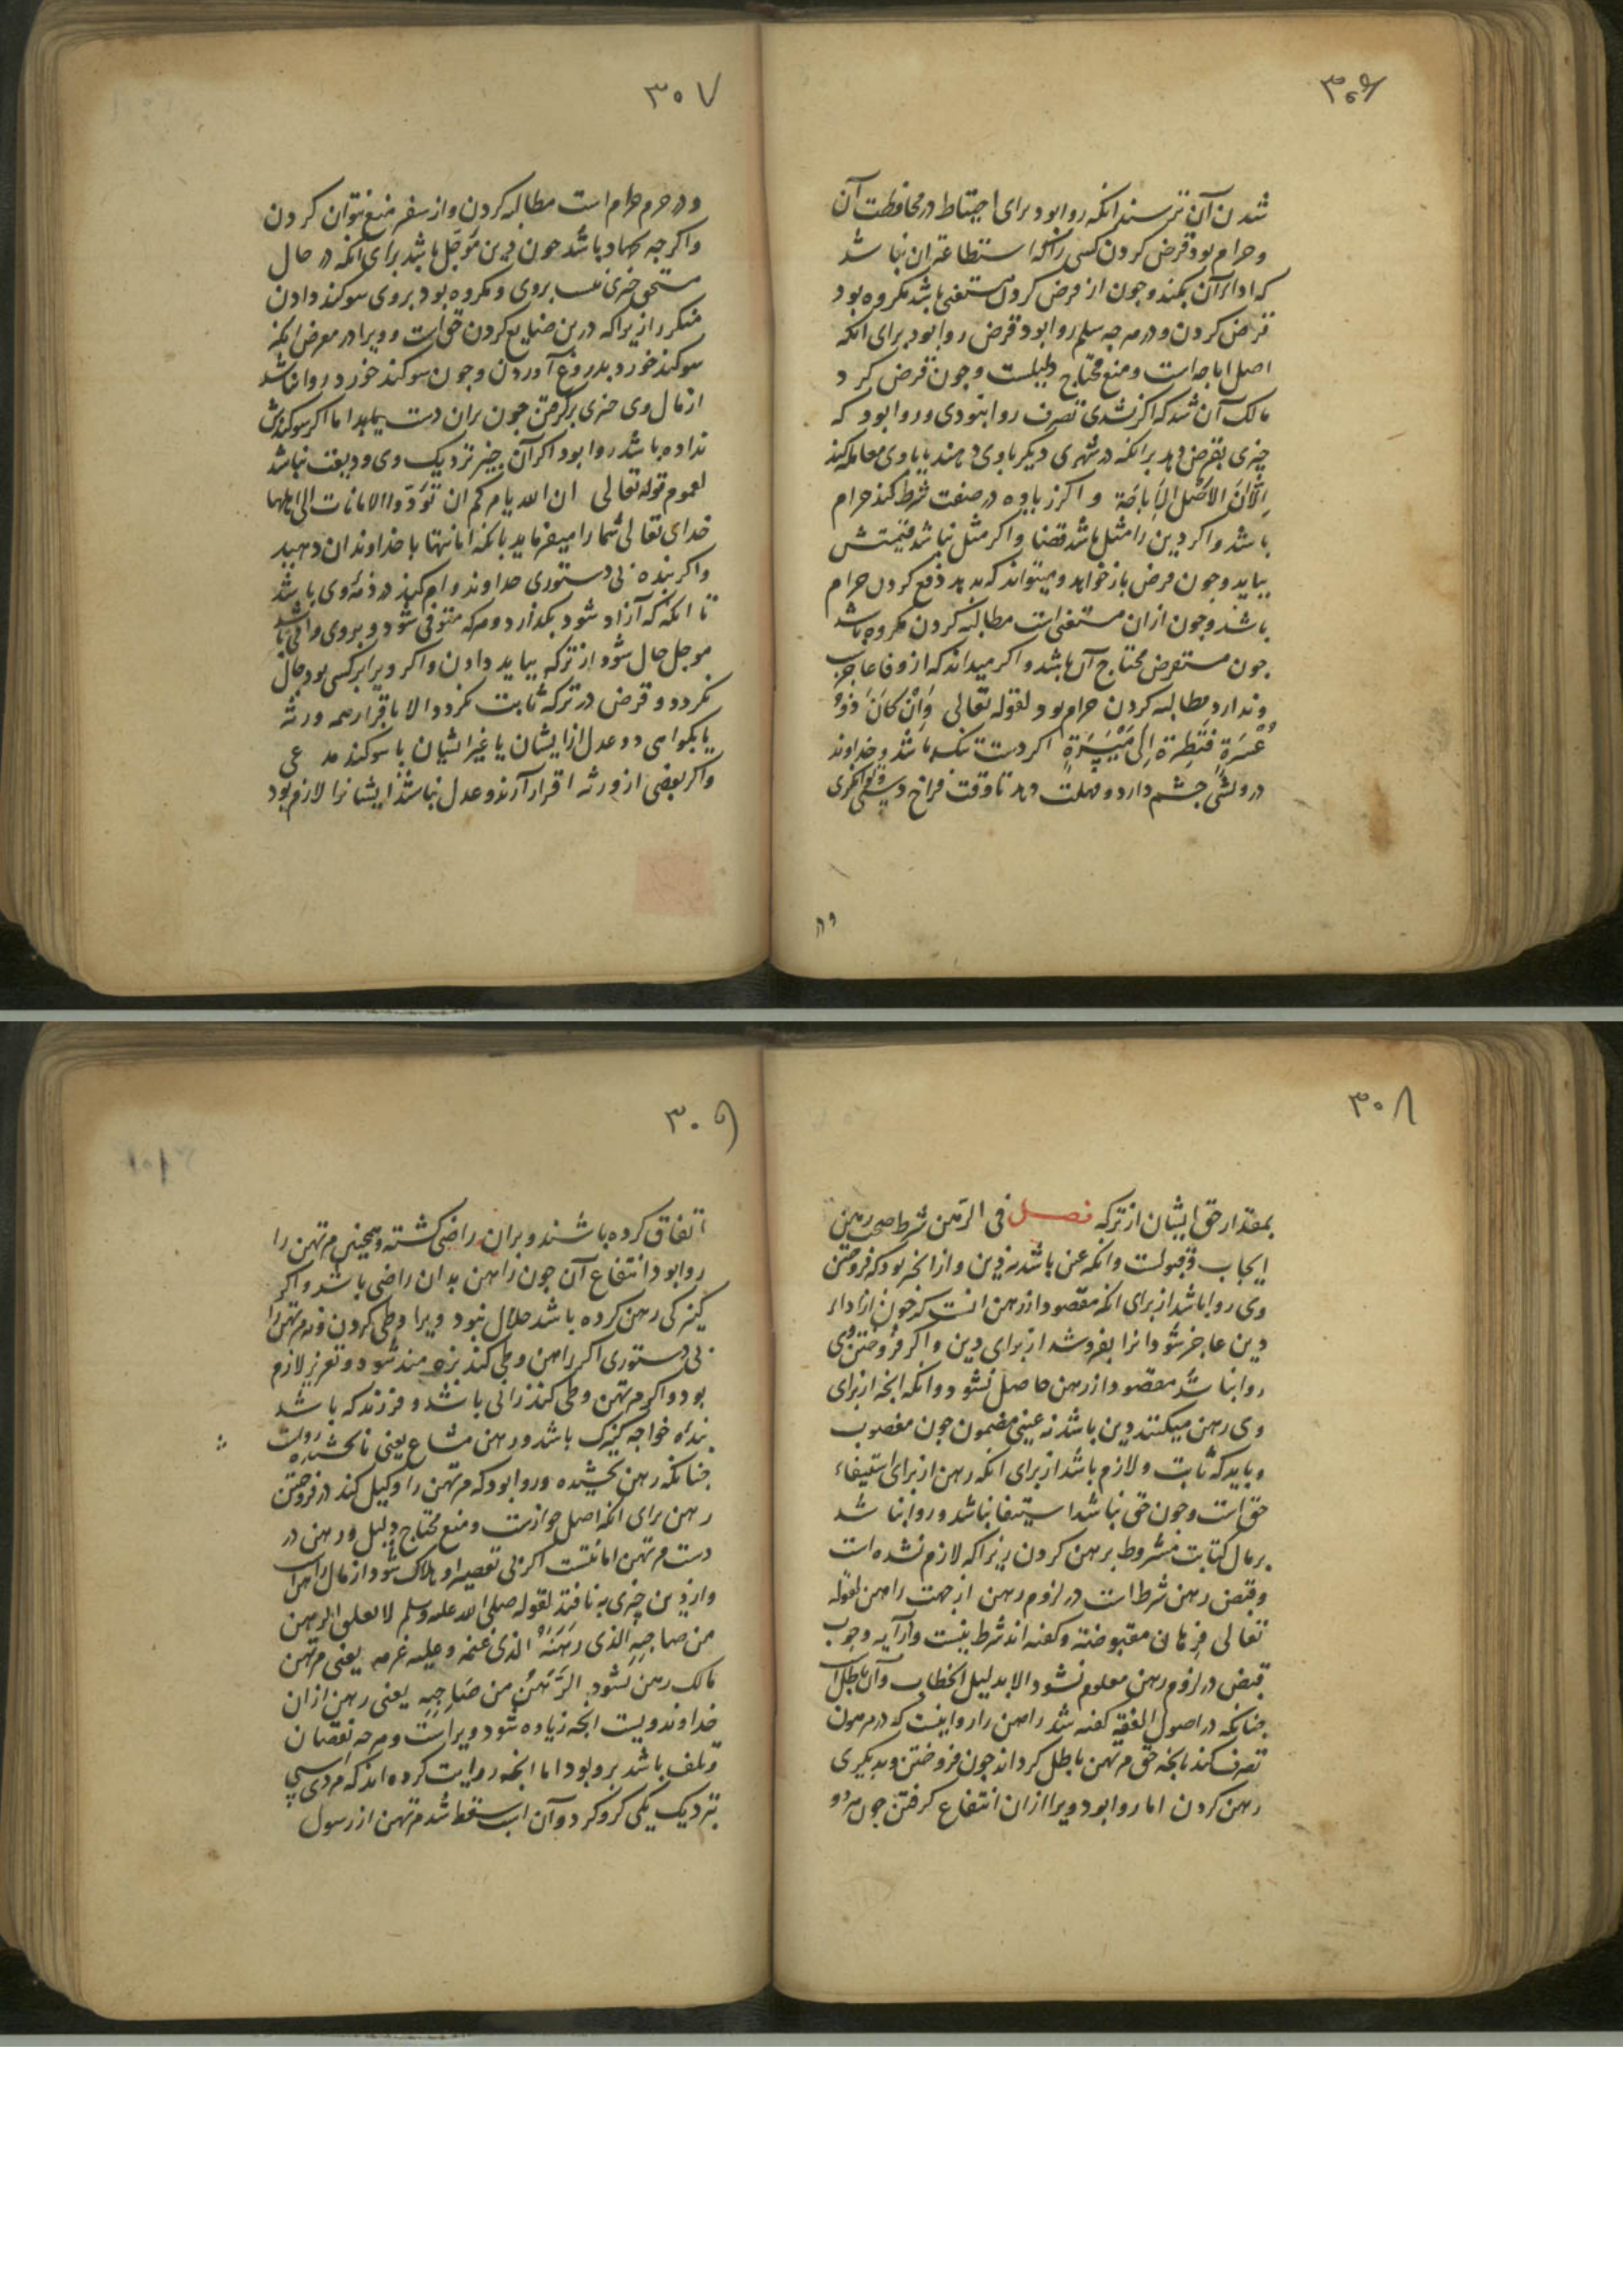 ۳۰۶
شدن آن ترسند انکه روا بود برای احتیاط در محافظت آن
و حرام بود قرض کردن کسی را که استطاعة ان نباشد
که ادا از آن بکند و چون از قرض کردن مستغنی باشد مکروه بود
قرض کردن و در هرچه سلم روا بود قرض روا بود برای انکه
اصل اباحه است و منع محتاج دلیلست و چون قرض کرد
مالک آن شد که اگر نشدی تصرف روا نبودی و روا بود که
چیزی بقرض دهد بر انکه در شهری دیگر باوی دهند یا باوی معامله کند
لِاَنَّ الاَصْلَ الاِبَاحَة و اگر زیاده در صفت شرط کند حرام
باشد و اگر دین را مثل باشد قضا و اگر مثل نباشد قیمتش
بباید و چون قرض باز خواهد و میتواند که بدهد دفع کردن حرام
باشد و چون ازان مستغنی است مطالبه کردن مکروه باشد
چون مستقرض محتاج آن باشد و اگر میداند که از وفا عاجزست
و ندارد مطالبه کردن حرام بود لقوله تعالی وَاِنْ کَانَ ذُوْ
عُسْرَةٍ فَنَظِرَةٌ اِلَی مَیْسَرَةٍ اگر دست تنگ باشد و خداوند
درویشی چشم دارد و مهلت دهد تا وقت فراخ دستی و توانگری
۳۰۷
و در حرم حرام است مطالبه کردن و از سفر منع نتوان کردن
و اگرچه جهاد باشد چون دین مؤجّل باشد برای انکه در حال
مستحق چیزی نیست بروی و مکروه بود بروی سوکند دادن
منکر را زیراکه درین ضایع کردن حق است و ویرا در معرض انکه
سوکند خورد بدروغ آوردن و چون سوکند خورد روا نباشد
از مال وی چیزی برگرفتن چون بران دست یابد اما اگر سوکندش
نداده باشد روا بود اگر آن چیز نزدیک وی ودیعت نباشد
لعموم قوله تعالی ان الله یامرکم ان تُؤَدّوا الامانات الی اهلها
خدای تعالی شما را میفرماید بانکه امانتها با خداوندان دهید
و اگر بنده بی دستوری خداوند وام کند در ذمّه وی باشد
تا انکه که آزاد شود بگذارد و هرکه متوفی شود و بروی وامی باشد
موجل حال شود از ترکه بباید دادن و اگر ویرا بر کسی بود حال
نگردد و قرض در ترکه ثابت نگردد الا باقرار همه ورثه
یا بگواهی دو عدل از ایشان یا غیر ایشان با سوکند مدعی
و اگر بعضی از ورثه اقرار آرند و عدل نباشند ایشانرا لازم بود
۳۰۸
بمقدار حق ایشان از ترکه فصل فی الرّهن شرط صحت رهن
ایجاب و قبولست و انکه عین باشد نه دین و از انچه بود که فروختن
وی روا باشد از برای انکه مقصود از رهن انست که چون از اداء
دین عاجز شود انرا بفروشد از برای دین و اگر فروختن وی
روا نباشد مقصود از رهن حاصل نشود و انکه انچه از برای
وی رهن میکنند دین باشد نه عینی مضمون چون مغصوب
و باید که ثابت و لازم باشد از برای انکه رهن از برای استیفاء
حق است و چون حق نباشد استیفا نباشد و روا نباشد
بر مال کتابت مشروط برهن کردن زیراکه لازم نشده است
و قبض رهن شرط است در لزوم رهن از جهت راهن لقوله
تعالی فرهان مقبوضة و گفته اند شرط نیست و از آیه وجوب
قبض در لزوم رهن معلوم نشود الا بدلیل الخطاب و آن باطل است
چنانکه در اصول الفقه گفته شد راهن را روا نیست که در مرهون
تصرف کند بانچه حق مرتهن باطل گرداند چون فروختن و بدیگری
رهن کردن اما روا بود ویرا ازان انتفاع گرفتن چون هر دو
۳۰۹
اتفاق کرده باشند و بران راضی گشته و همچنین مرتهن را
روا بود انتفاع آن چون راهن بدان راضی باشد و اگر
کنیزکی رهن کرده باشد حلال نبود ویرا وطی کردن و نه مرتهن را
بی دستوری اگر راهن وطی کند بزه مند شود و تعزیر لازم
بود و اگر مرتهن وطی کند زانی باشد و فرزند که باشد
بنده خواجه کنیزک باشد و رهن مشاع یعنی نابخشیده رواست
چنانکه رهن بخشیده و روا بود که مرتهن را وکیل کند در فروختن
رهن برای انکه اصل جوازست و منع محتاج دلیل و رهن در
دست مرتهن امانتست اگر بی تقصیر او هلاک شود از مال راهن است
و از دین چیزی بنافتد لقوله صلی الله علیه وسلم لا یغلق الرهن
من صاحِبِهِ الذی رَهَنَهُ الذی غنمه وعلیه غرمه یعنی مرتهن
مالک رهن نشود الرَّهْنُ من صَاحِبِهِ یعنی رهن ازان
خداوند ویست انچه زیاده شود ویراست و هرچه نقصان
و تلف باشد برو بود اما انچه روایت کرده اند که مردی اسپی
نزدیک یکی گرو کرد و آن اسب سقط شد مرتهن از رسول